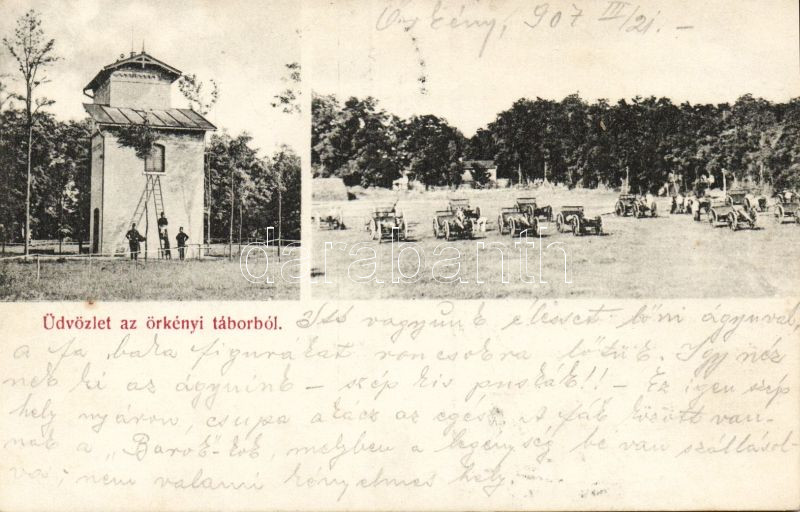 Örkény, 907 III/21. –
© darabanth
Üdvözlet az örkényi táborból.
Itt vagyunk élessel lőni ágyuval,
a fa baka figurákat roncsokra lőttük. Igy néz
nek ki az ágyuink – szép kis puskák!! – Ez igen szép
hely nyáron, csupa akácz az egész. A fák között van-
nak a „Barok"-kok, melyben a legénység be van szállásol-
va; nem valami kényelmes hely.